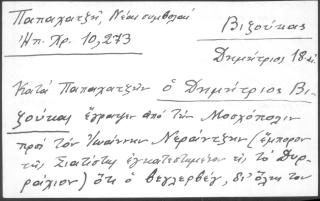 Παπαχατζῆ, Νέαι συμβολαί
Ἠπ. Χρ. 10, 273
Βιζούκας
Δημήτριος 18 αἰ.
Κατὰ Παπαχατζῆν ὁ Δημήτριος Βι-
ζούκας ἔγραψεν ἀπὸ τὴν Μοσχόπολιν
πρὸς τὸν Ἰωάννην Νεράντζην (ἔμπορον
τῆς Σιατίστης ἐγκατεστημένον εἰς τὸ Δυρ-
ράχιον) ὅτι ὁ βεγλερβέγ, δι' ὅλης του